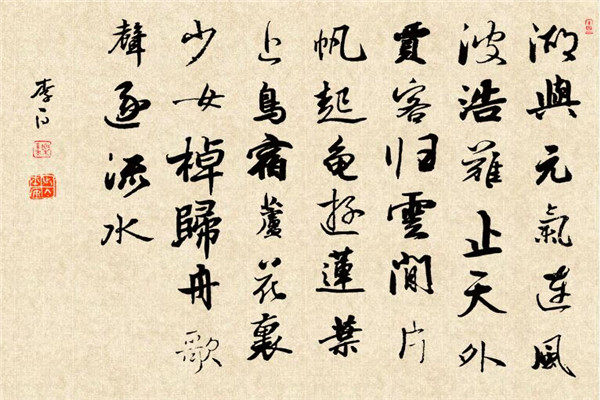 湖與元氣連風
波浩難止天外
賈客归雲間片
帆起龟遊蓮葉
上鳥宿蘆花裏
少女棹歸舟歌
聲逐流水
李白